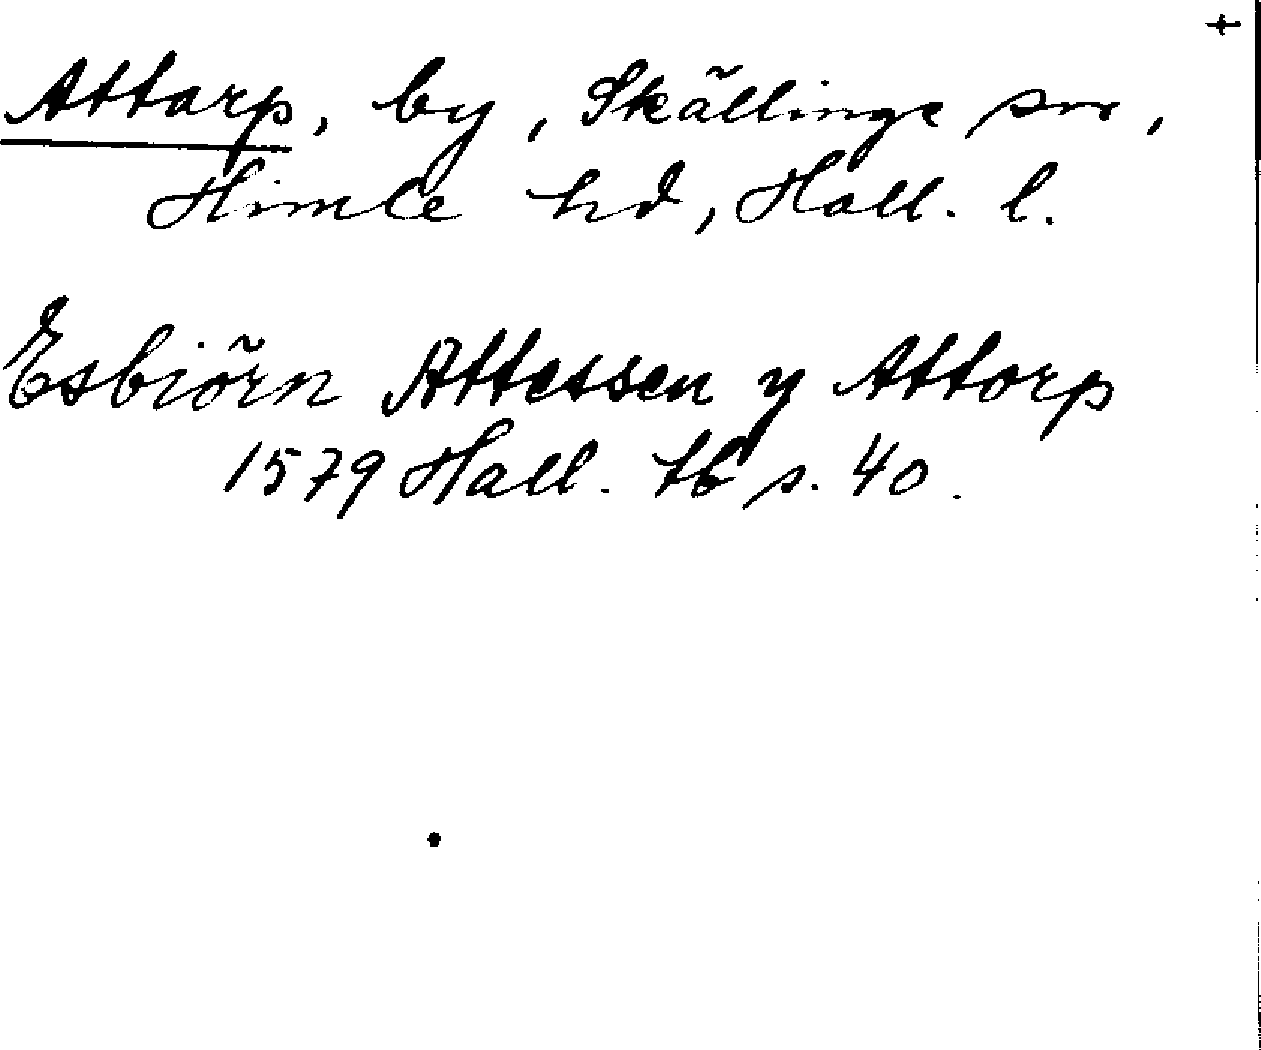 +
Attarp, by, Skällinge sn,
Himle hd, Hall. l.
Esbiörn Attessen y Attorp
1579 Hall. tb s. 40.